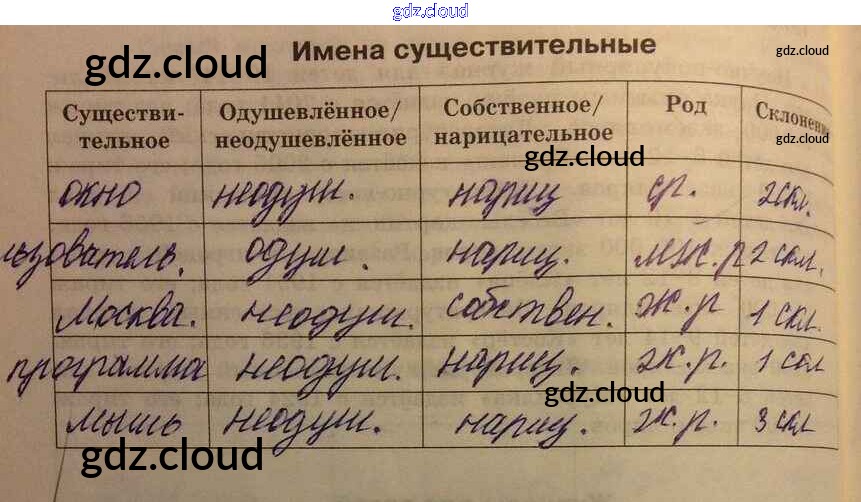 gdz.cloud
Имена существительные
gdz.cloud gdz.cloud
Существи- Одушевлённое/ Собственное/ Род Склонение
тельное неодушевлённое нарицательное gdz.cloud
gdz.cloud
окно неодуш. нариц ср. 2скл.
льзователь. одуш. нариц. мж.р 2 скл.
Москва. неодуш. собствен. ж.р 1 скл.
программа неодуш. нариц. ж.р. 1 скл
gdz.cloud
мышь неодуш. нариц. ж.р. 3 скл
gdz.cloud